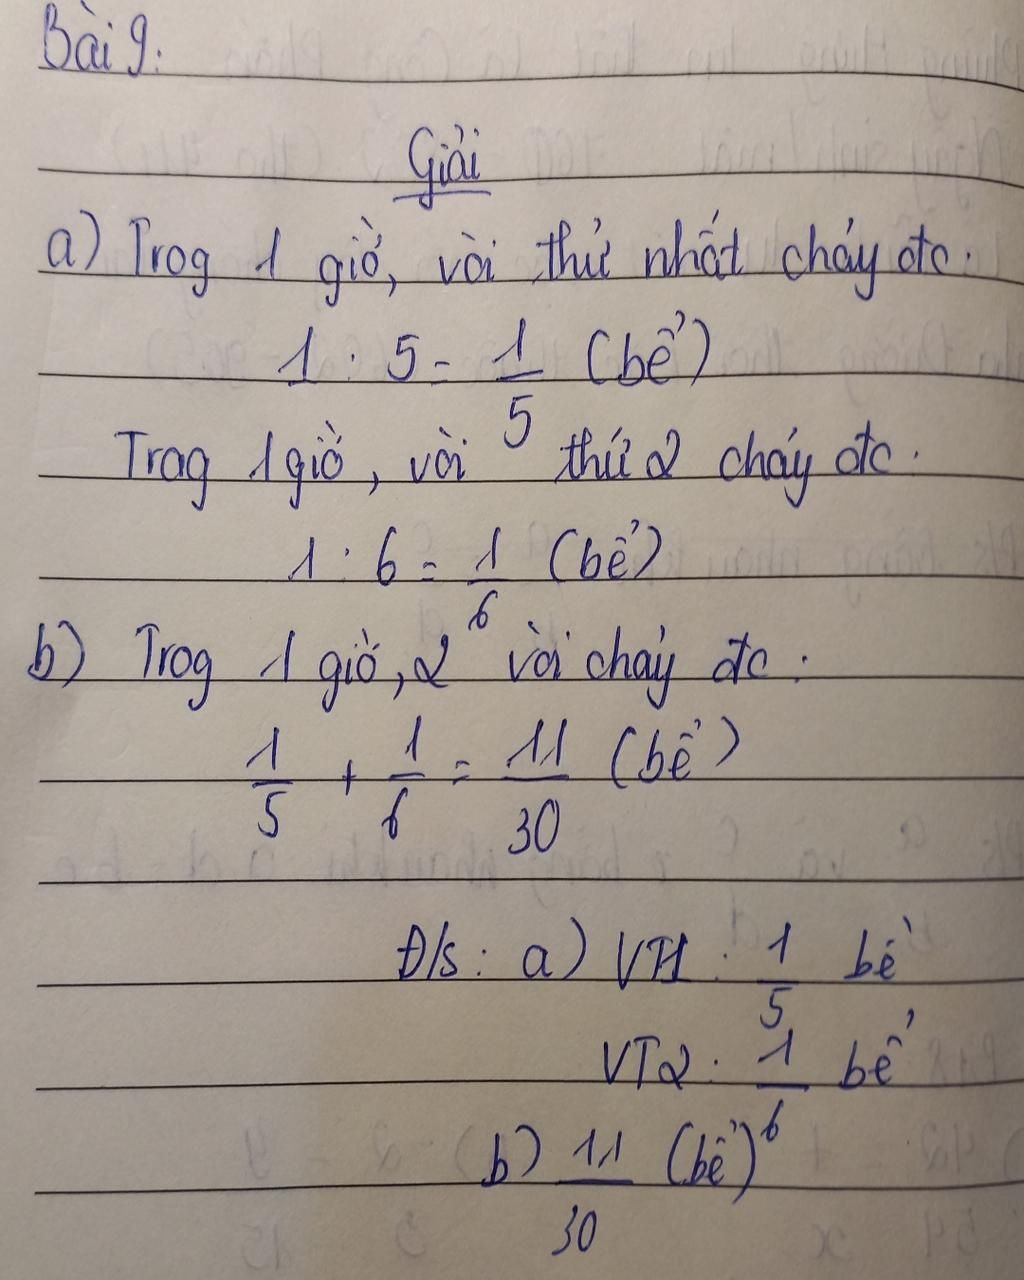 Bài 9:
Giải
a) Trog 1 giờ, vòi thứ nhất chảy đc:
1 : 5 = 1/5 (bể)
Trog 1 giờ, vòi thứ 2 chảy đc:
1 : 6 = 1/6 (bể)
b) Trog 1 giờ, 2 vòi chảy đc:
1/5 + 1/6 = 11/30 (bể)
Đ/s: a) VT1: 1/5 bể
VT2: 1/6 bể
b) 11/30 (bể)